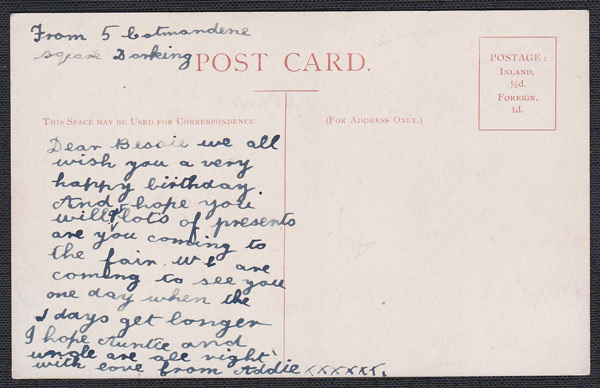 From 5 Cotmandene
square Dorking
POST CARD.
POSTAGE:
INLAND,
½d.
FOREIGN,
1d.
THIS SPACE MAY BE USED FOR CORRESPONDENCE.
(FOR ADDRESS ONLY.)
Dear Bessie we all
wish you a very
happy birthday.
And hope you
will gt lots of presents
are you coming to
the fair. We are
coming to see you
one day when the
days get longer
I hope Auntie and
uncle are all right
with love from Addie xxxxxx.